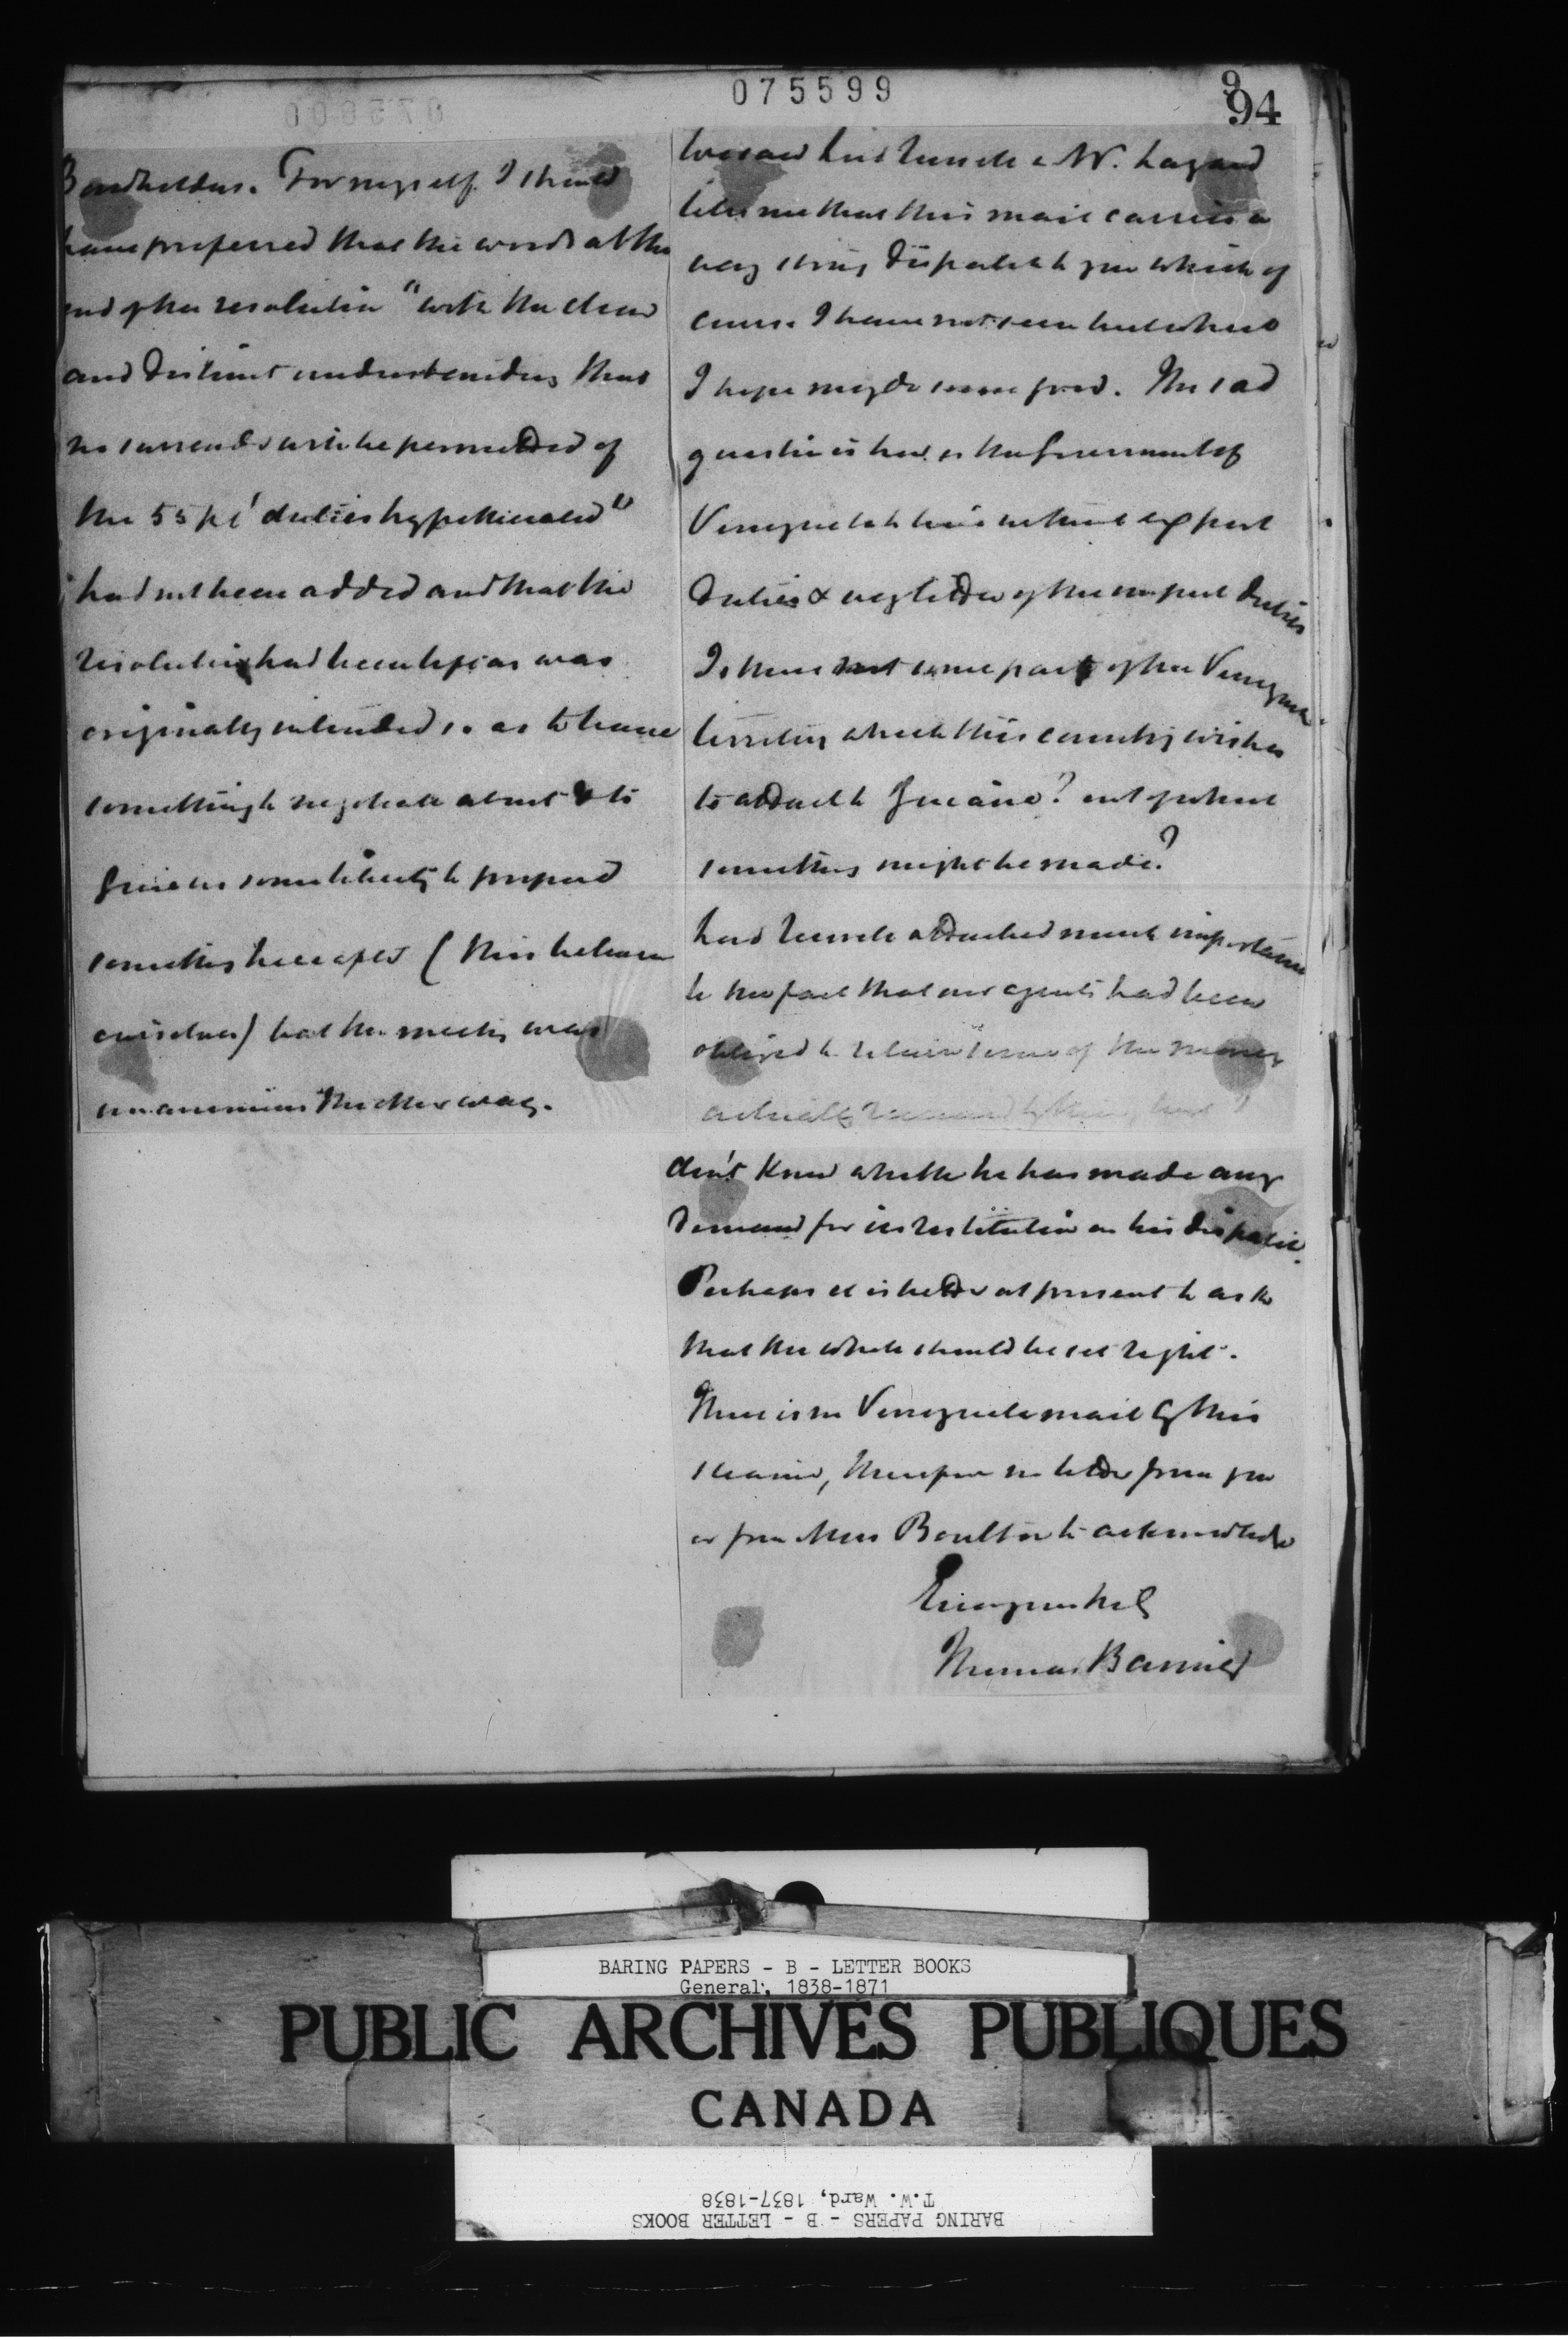 075599
94
Bondholders. For myself I should
have preferred that the words at the
end of the resolution "with the clear
and distinct understanding that
no surrender will be permitted of
the 55 pct duties hypothecated"
had not been added and that the
resolution had been left as was
originally intended so as to leave
something to negotiate about & to
give us some liberty to propose
something hereafter (this between
ourselves) but the meeting was
unanimous the other way.
We saw Lord Russell & Mr. Layard
tells me that this mail carries a
very strong dispatch to you which of
course I have not seen but which
I hope may do some good. The sad
question is how is the Government of
Venezuela to live without export
duties & of the import duties
Is there not some part of the Venezuela
territory which this country wishes
to attach to Guiana? out of what
something might be made?
Lord Russell attached much importance
to the fact that our agents had been
obliged to return some of the money
actually received by them, but I
don't know whether he has made any
demand for its restitution in his dispatch.
Perhaps it is better at present to ask
that the whole should be set right.
There is no Venezuela mail by this
steamer, therefore no letter from you
or from Messrs Boulton to acknowledge
Ever yours truly
Thomas Baring
BARING PAPERS - B - LETTER BOOKS
General, 1838-1871
PUBLIC ARCHIVES PUBLIQUES
CANADA
BARING PAPERS - B - LETTER BOOKS
T.W. Ward, 1837-1838